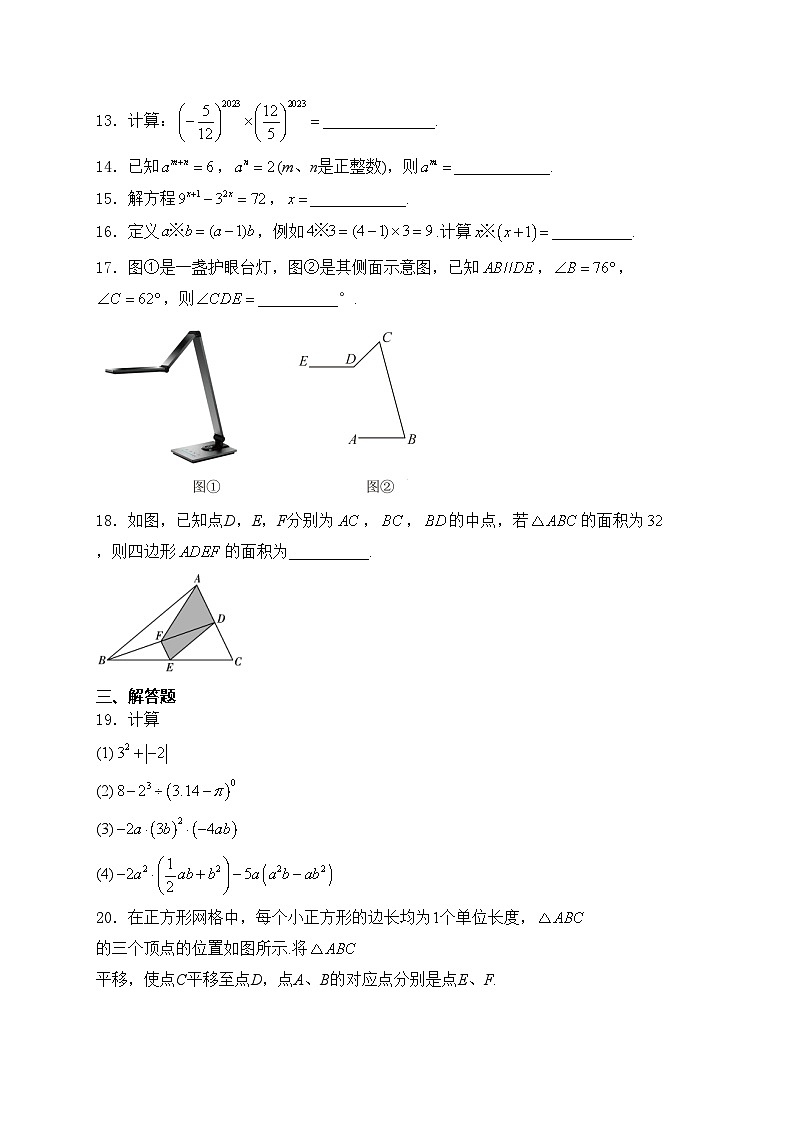 13. 计算：(−5/12)^2023 × (12/5)^2023 = ______________.
14. 已知a^(m+n) = 6，a^n = 2(m、n是正整数)，则a^m = ____________.
15. 解方程9^(x+1) − 3^(2x) = 72，x = ____________.
16. 定义a※b = (a−1)b，例如4※3 = (4−1)×3 = 9.计算x※(x+1) = __________.
17. 图①是一盏护眼台灯，图②是其侧面示意图，已知AB//DE，∠B = 76°，
∠C = 62°，则∠CDE = __________°.
C
E D
A B
图① 图②
18. 如图，已知点D，E，F分别为AC，BC，BD的中点，若△ABC的面积为32
，则四边形ADEF的面积为__________.
A
D
F
B E C
三、解答题
19. 计算
(1) 3² + |−2|
(2) 8 − 2³ ÷ (3.14 − π)⁰
(3) −2a·(3b)²·(−4ab)
(4) −2a²·(1/2 ab + b²) − 5a(a²b − ab²)
20. 在正方形网格中，每个小正方形的边长均为1个单位长度，△ABC
的三个顶点的位置如图所示.将△ABC
平移，使点C平移至点D，点A、B的对应点分别是点E、F.